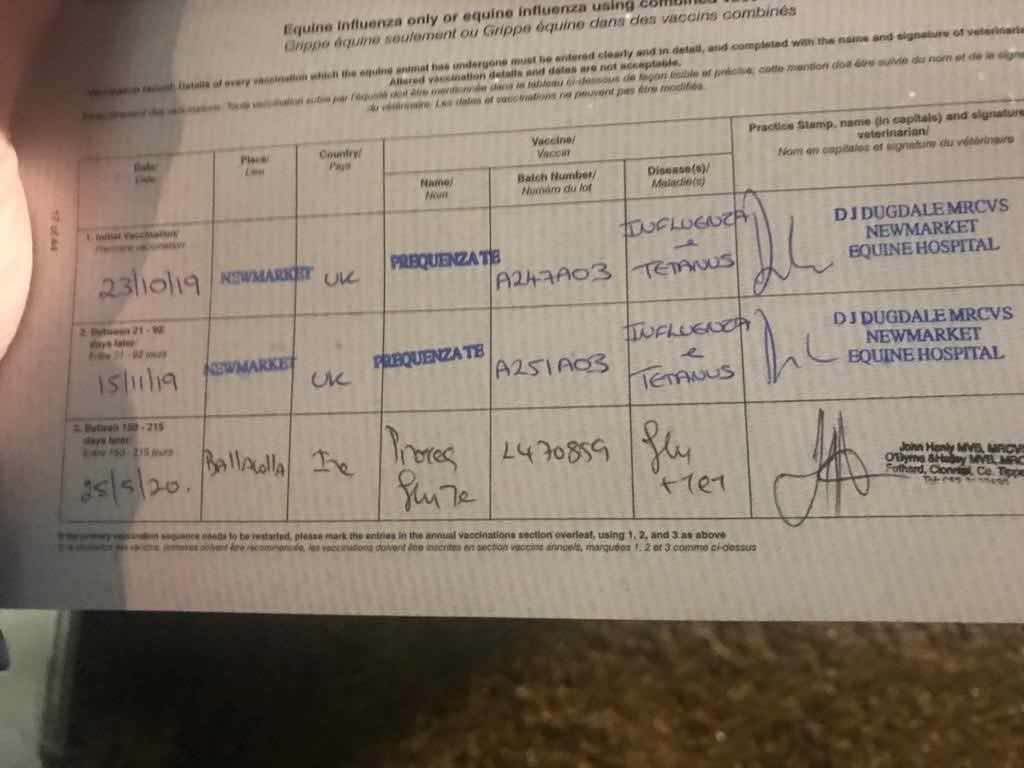 Equine Influenza only or equine influenza using combined
Grippe équine seulement ou Grippe équine dans des vaccins combinés
Details of every vaccination which the equine animal has undergone must be entered clearly and in detail, and completed with the name and signature of veterinarian
Altered vaccination details and dates are not acceptable.
Toute vaccination subie par l'équidé doit être mentionnée dans le tableau ci-dessous de façon lisible et précise; cette mention doit être suivie du nom et de la
du vétérinaire. Les dates et vaccinations ne peuvent pas être modifiés.
Date/
Date
Place/
Lieu
Country/
Pays
Vaccine/
Vaccin
Name/
Nom
Batch Number/
Numéro du lot
Disease(s)/
Maladie(s)
Practice Stamp, name (in capitals) and signature
veterinarian/
Nom en capitales et signature du vétérinaire
17 of 44
1. Initial Vaccination/
Première vaccination
23/10/19
NEWMARKET
UK
PREQUENZA TE
A247A03
INFLUENZA
e
TETANUS
D J DUGDALE MRCVS
NEWMARKET
EQUINE HOSPITAL
2. Between 21 - 92
days later:
Entre 21 - 92 jours
15/11/19
NEWMARKET
UK
PREQUENZA TE
A251A03
INFLUENZA
e
TETANUS
D J DUGDALE MRCVS
NEWMARKET
EQUINE HOSPITAL
3. Between 150 - 215
days later:
Entre 150 - 215 jours
25/5/20.
Ballacolla
Ire
Proteq
Flu Te
L470859
Flu
+Tet
John Henly MVB, MRCVS
Fethard, Clonmel, Co. Tippe
If the primary vaccination sequence needs to be restarted, please mark the entries in the annual vaccinations section overleaf, using 1, 2, and 3 as above
doivent être recommencée, les vaccinations doivent être inscrites en section vaccins annuels, marquées 1, 2 et 3 comme ci-dessus